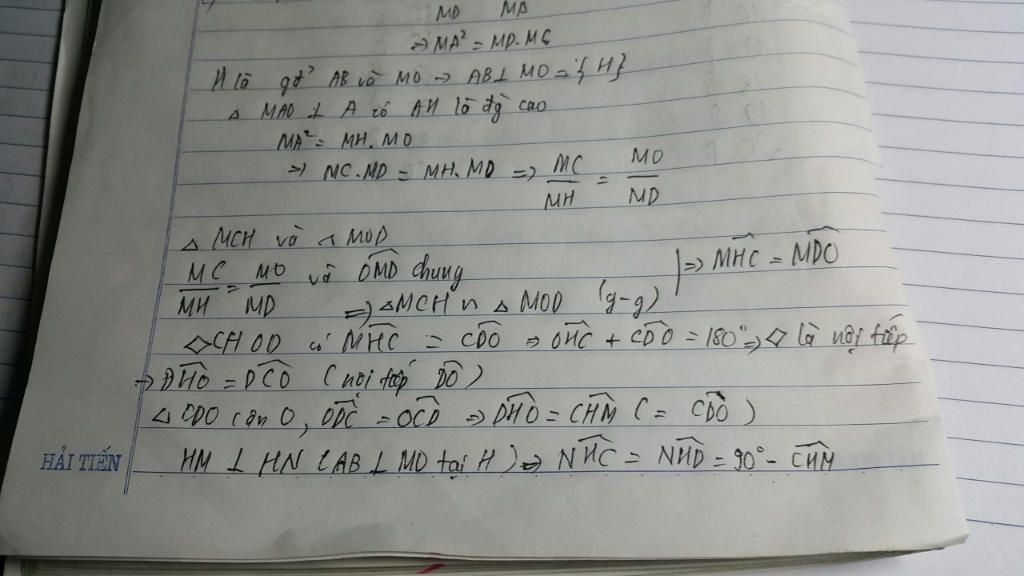 MD MA
⇒ MA² = MD.MC
H là gđ² AB và MO → AB⊥ MO = {H}
△ MAO ⊥ A có AH là đg̀ cao
MA² = MH.MO
⇒ MC.MD = MH.MD ⇒ MC/MH = MO/MD
△ MCH và △ MOD
MC/MH = MO/MD và OMD̂ chung | ⇒ MHĈ = MDÔ
⇒ △MCH ∽ △ MOD (g-g)
◇CHOD có MHĈ = CDÔ ⇒ OHĈ + CDÔ = 180° ⇒ ◇ là nội tiếp
→ DHÔ = DCÔ (nội tiếp DÔ)
△ CDO cân O, ODĈ = OCD̂ ⇒ DHÔ = CHM̂ (= CDÔ)
HẢI TIẾN HM ⊥ HN (AB ⊥ MO tại H) ⇒ NHĈ = NHD̂ = 90° - CHM̂